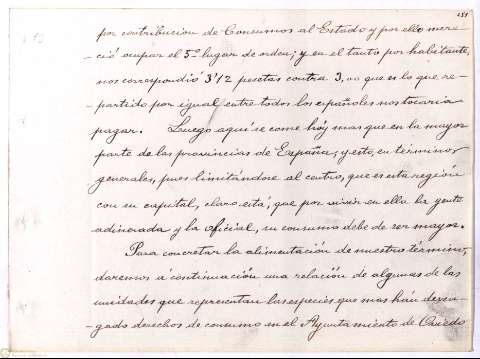 151
por contribucion de Consumos al Estado y por ello mere-
-ció ocupar el 5º lugar de orden; y en el tanto por habitante,
nos correspondió 3'12 pesetas contra 3, que es lo que re-
-partido por igual entre todos los españoles nos tocaria
pagar. Luego aquí se come hóy mas que en la mayor
parte de las provincias de España; y esto, en términos
generales, pues limitándose al centro, que es esta región
con su capital, claro está, que por vivir en ella la gente
adinerada y la oficial, su consumo debe de ser mayor.
Para concretar la alimentación de nuestro término,
daremos á continuación una relación de algunas de las
unidades que representan las especies que mas hán deven-
-gado derechos de consumo en el Ayuntamiento de Oviedo